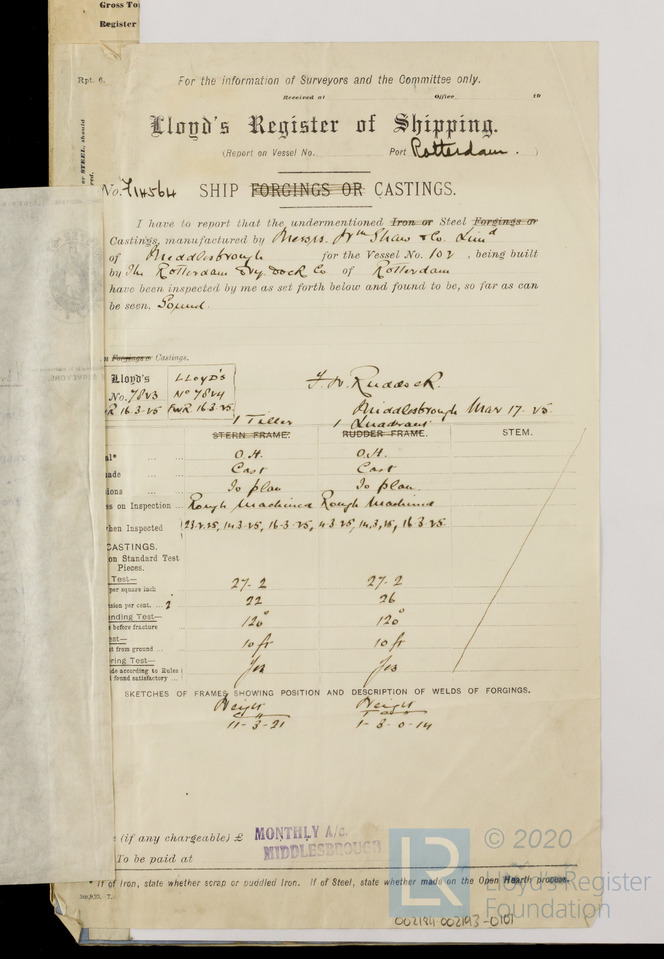 Gross To
Register
Rpt. 6.
For the information of Surveyors and the Committee only.
Received at Office 19
Lloyd's Register of Shipping.
(Report on Vessel No. Port Rotterdam. )
No. SHIP FORGINGS OR CASTINGS.
I have to report that the undermentioned Iron or Steel Forgings or
Castings, manufactured by Messrs. Wm Shaw & Co. Limd
of Middlesbrough for the Vessel No. 102, being built
by The Rotterdam Dry Dock Co of Rotterdam
have been inspected by me as set forth below and found to be, so far as can
be seen, Sound.
n Forgings or Castings.
Lloyd's LLOYD'S
No. 7823 No 7824
R 16.3.25 FWR. 16.3.25
Middlesbrough Mar 17. 25.
1 Tiller 1 Quadrant
STERN FRAME. RUDDER FRAME. STEM.
al* O.H. O.H.
ade Cast Cast
ions To plan To plan
es on Inspection Rough Machined Rough Machined
hen Inspected 14.3.25, 16.3.25, 4.3.25, 14.3.25, 16.3.25.
CASTINGS.
on Standard Test
Pieces.
Test— 27.2 27.2
per square inch
sion per cent. 2 22 26
nding Test— 120° 120°
before fracture
est— 10 ft 10 ft
t from ground
ring Test— Yes Yes
de according to Rules
found satisfactory
SKETCHES OF FRAMES, SHOWING POSITION AND DESCRIPTION OF WELDS OF FORGINGS.
Weight Weight
11-3-21 1-3-0-14
(if any chargeable) £ MONTHLY A/c.
MIDDLESBROUGH
To be paid at
* If of Iron, state whether scrap or puddled Iron. If of Steel, state whether made on the Open Hearth process.
LR © 2020
Lloyd's Register
Foundation
002184-002193-0101